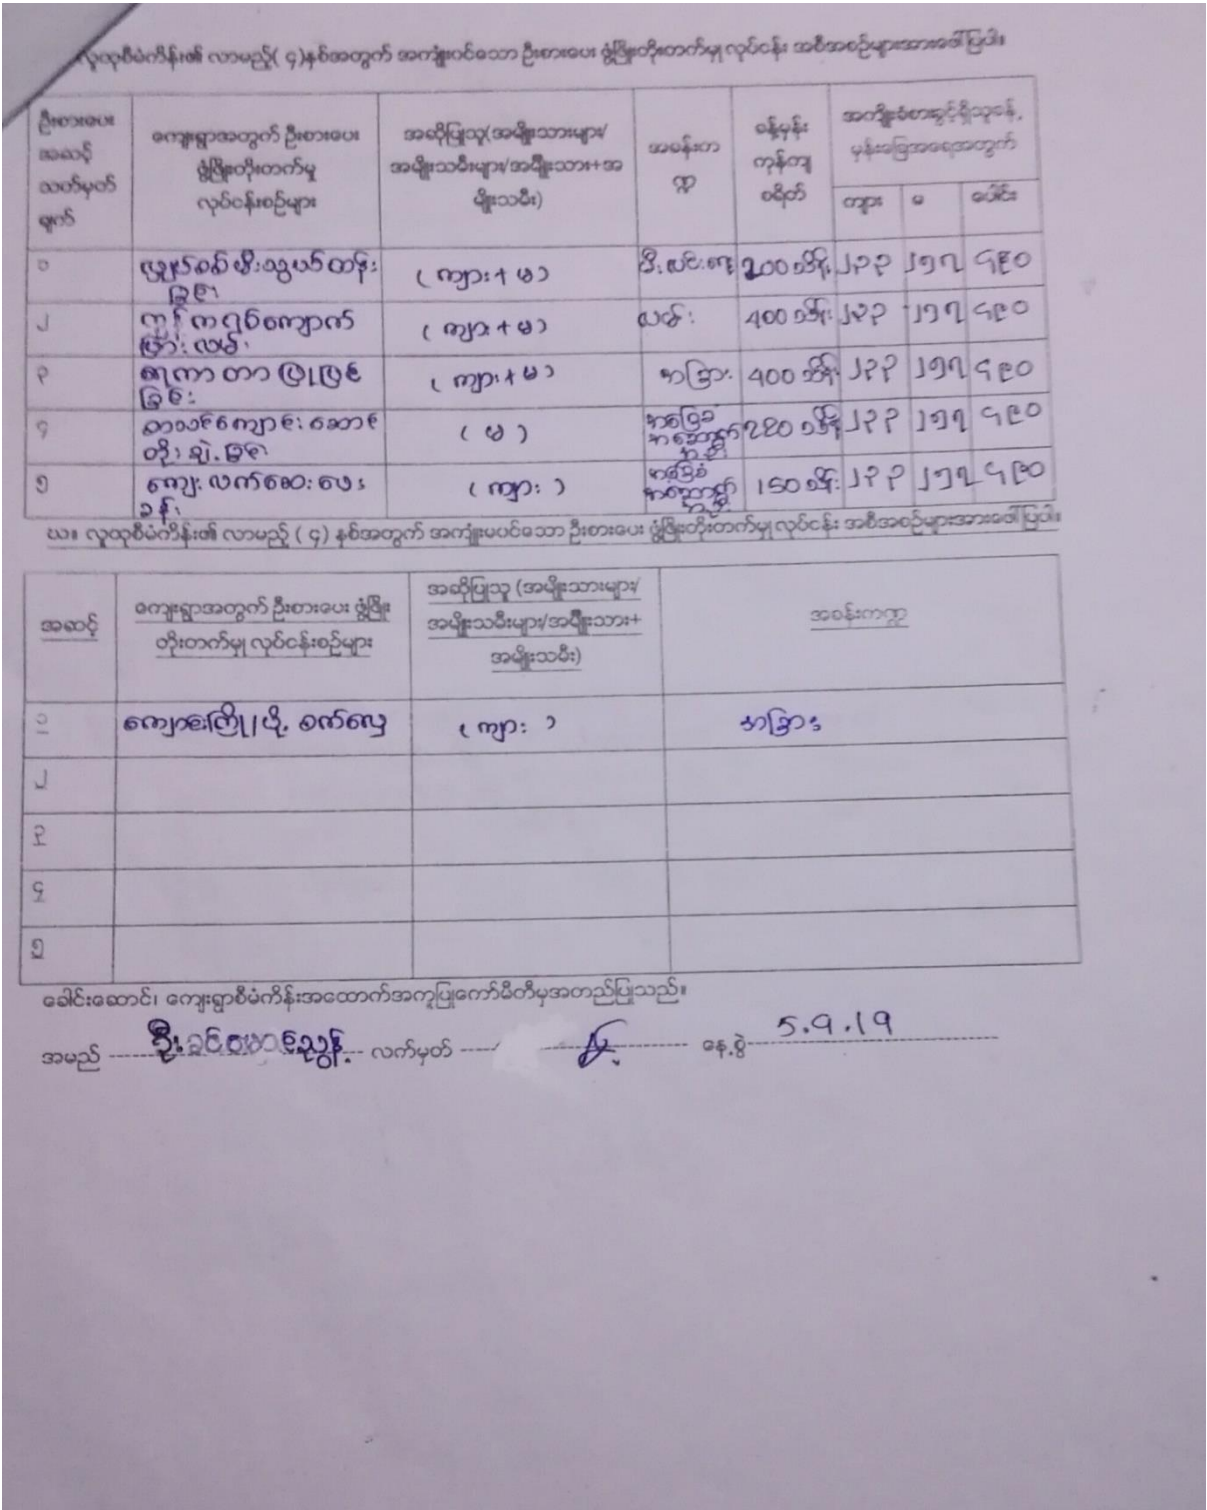 လူထုစီမံကိန်း၏ လာမည့်( ၄)နှစ်အတွက် အကျုံးဝင်သော ဦးစားပေး ဖွံ့ဖြိုးတိုးတက်မှု လုပ်ငန်း အစီအစဉ်များအားဖော်ပြပါ။
ဦးစားပေး အဆင့် သတ်မှတ် ချက်
ကျေးရွာအတွက် ဦးစားပေး ဖွံ့ဖြိုးတိုးတက်မှု လုပ်ငန်းစဉ်များ
အဆိုပြုသူ(အမျိုးသားများ/ အမျိုးသမီးများ/အမျိုးသား+အ မျိုးသမီး)
အခန်းက ဏ္ဍ
ခန့်မှန်း ကုန်ကျ စရိတ်
အကျိုးခံစားခွင့်ရှိသူခန့် မှန်းခြေအရေအတွက်
ကျား မ ပေါင်း
၁ လျှပ်စစ်မီးသွယ်တန်း ခြင်း ( ကျား + မ ) မီးလင်းရေး 200 သိန်း ၂၃၃ ၂၅၇ ၄၉၀
၂ ကွန်ကရစ်ကျောက် လမ်း ( ကျား + မ ) လမ်း 400 သိန်း ၂၃၃ ၂၅၇ ၄၉၀
၃ ရေကာတာ ပြုပြင် ခြင်း ( ကျား + မ ) အခြား 400 သိန်း ၂၃၃ ၂၅၇ ၄၉၀
၄ စာသင်ကျောင်းဆောင် တိုးချဲ့ခြင်း ( မ ) အခြေခံ အဆောက်အဦ 220 သိန်း ၂၃၃ ၂၅၇ ၄၉၀
၅ ကျေးလက်ဆေးပေး ခန်း ( ကျား ) အခြေခံ အဆောက်အဦ 150 သိန်း ၂၃၃ ၂၅၇ ၄၉၀
ဃ။ လူထုစီမံကိန်း၏ လာမည့် ( ၄ ) နှစ်အတွက် အကျုံးမဝင်သော ဦးစားပေး ဖွံ့ဖြိုးတိုးတက်မှု လုပ်ငန်း အစီအစဉ်များအားဖော်ပြပါ။
အဆင့်
ကျေးရွာအတွက် ဦးစားပေး ဖွံ့ဖြိုး တိုးတက်မှု လုပ်ငန်းစဉ်များ
အဆိုပြုသူ (အမျိုးသားများ/ အမျိုးသမီးများ/အမျိုးသား+ အမျိုးသမီး)
အခန်းကဏ္ဍ
၁ ကျောင်းကြို/ပို့ စက်လှေ ( ကျား ) အခြား
၂
၃
၄
၅
ခေါင်းဆောင်၊ ကျေးရွာစီမံကိန်းအထောက်အကူပြုကော်မီတီမှအတည်ပြုသည်။
အမည် ဦးခင်မောင်ညွန့် လက်မှတ် နေ့စွဲ 5.9.19